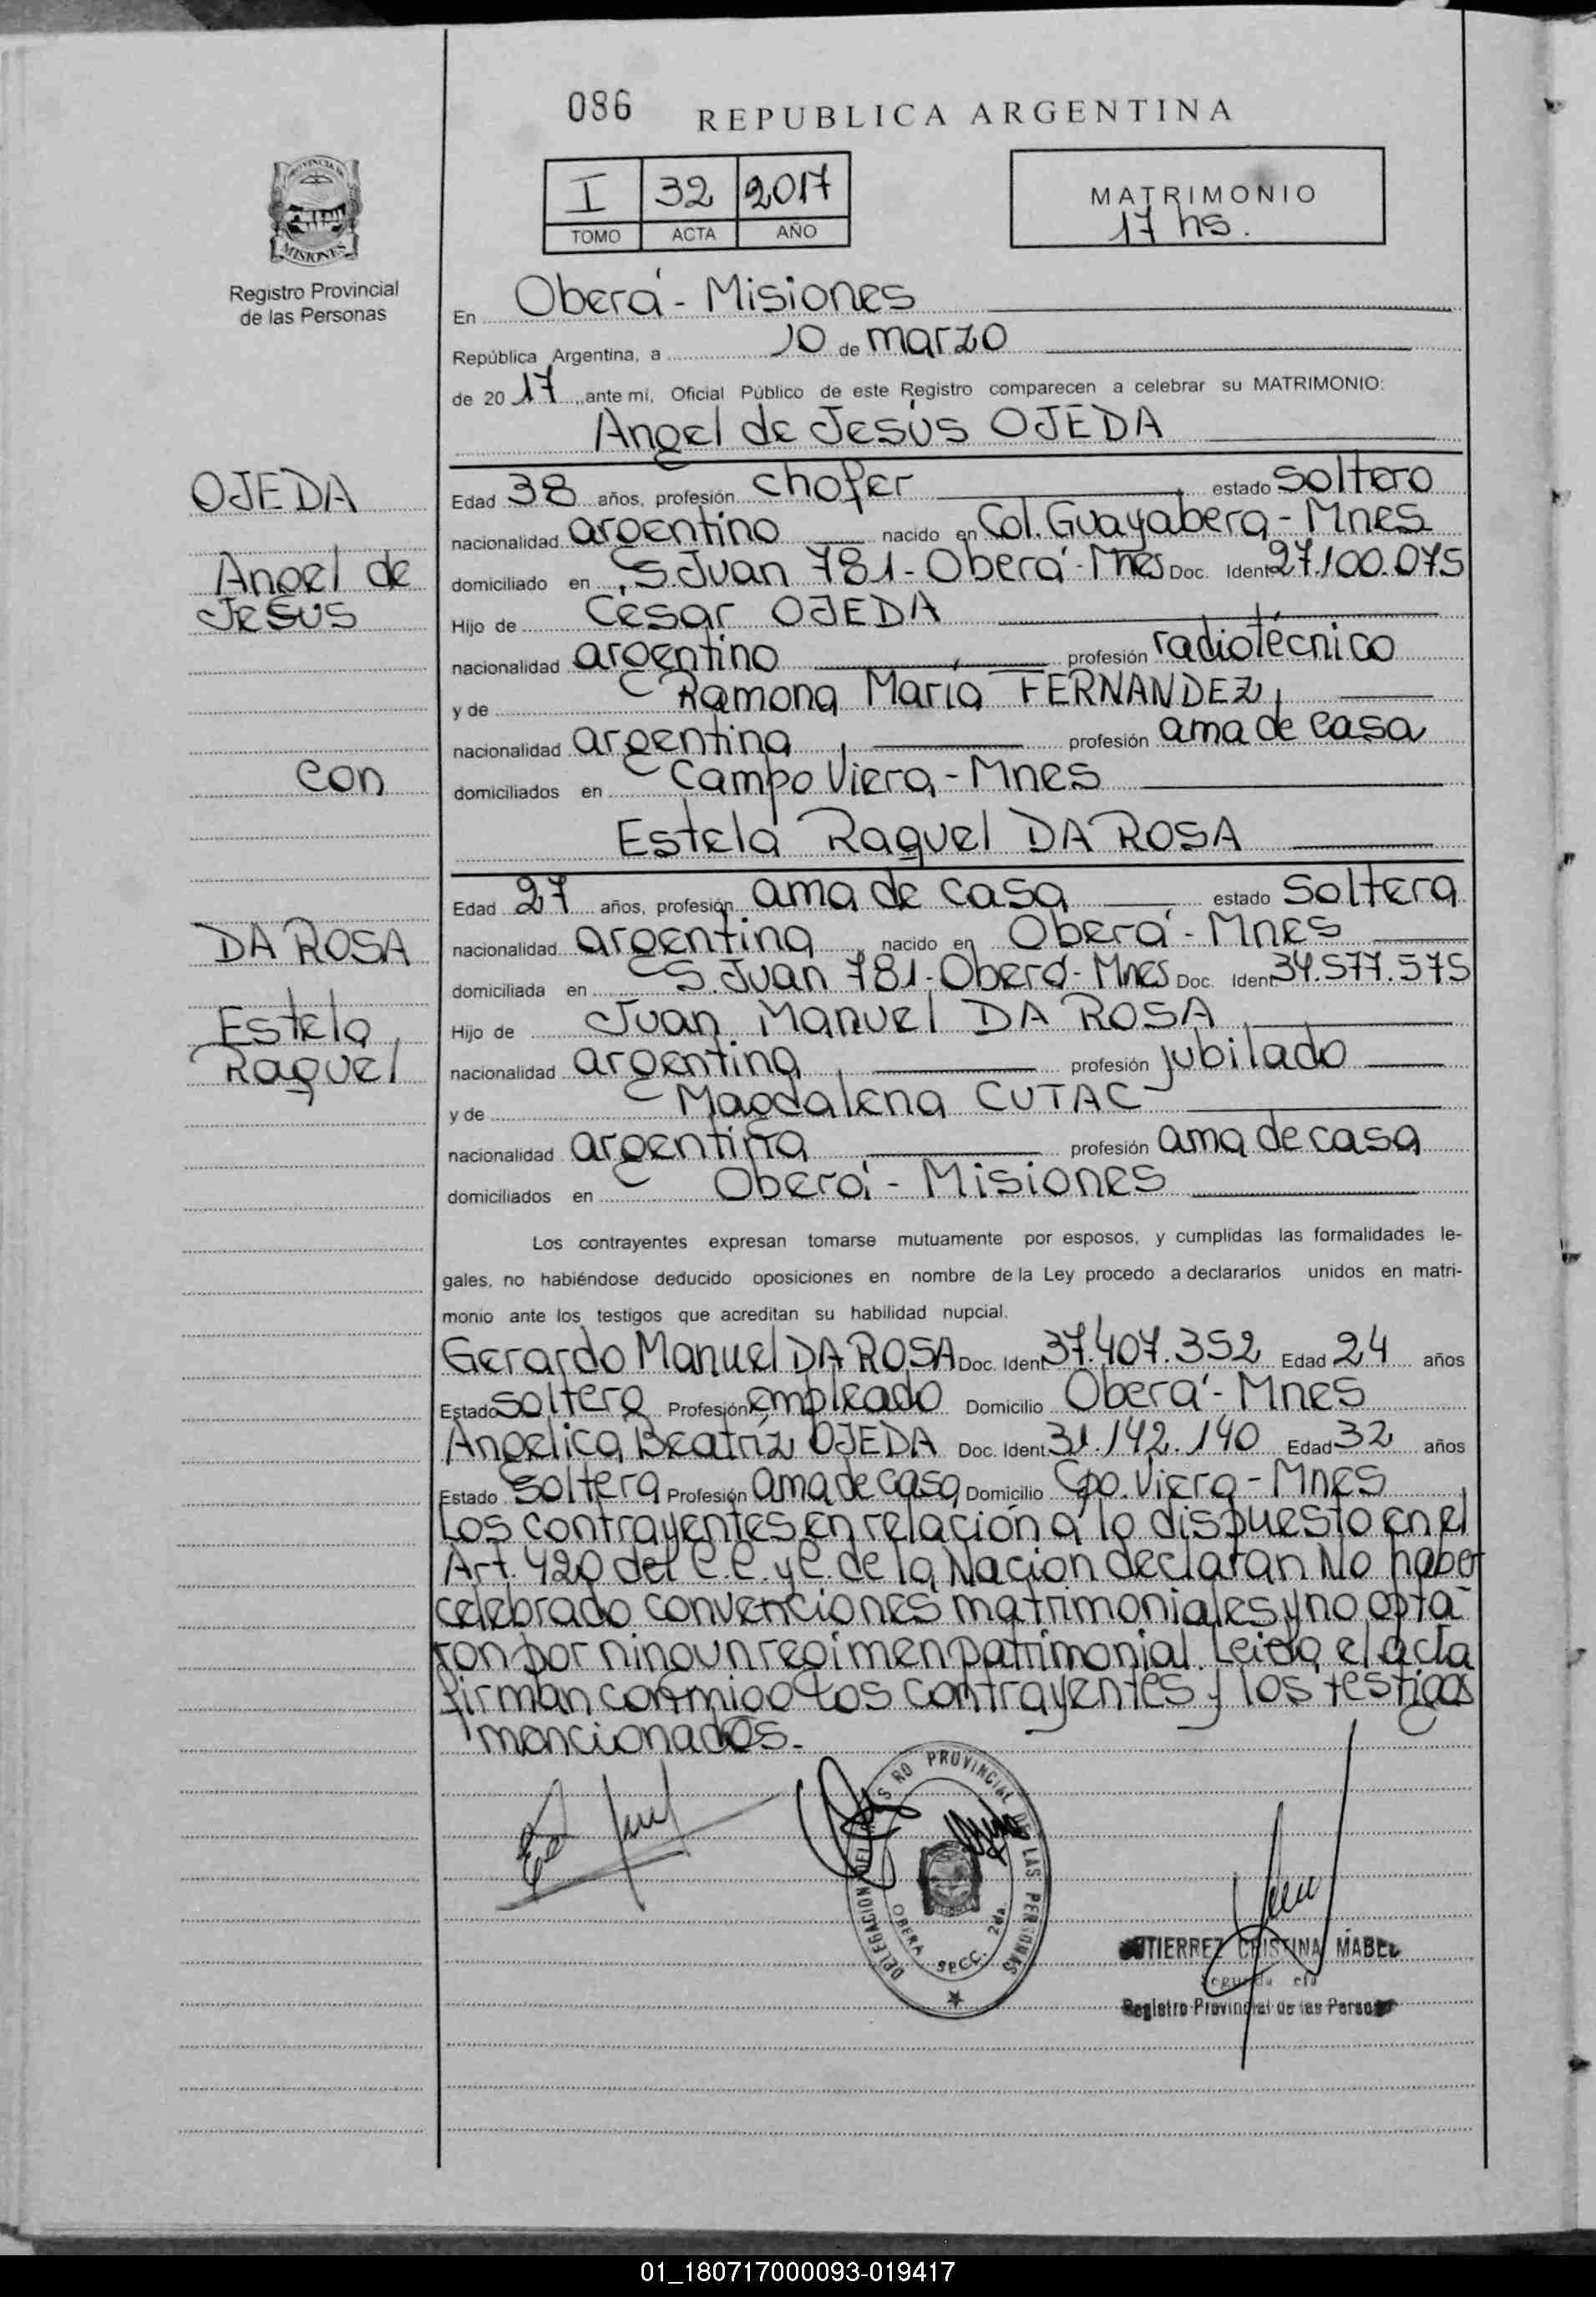 086
REPUBLICA ARGENTINA
I 32 2017
TOMO ACTA AÑO
MATRIMONIO
17 hs.
PROVINCIA DE
MISIONES
Registro Provincial
de las Personas
En Oberá - Misiones
República Argentina, a 10 de marzo
de 2017, ante mi, Oficial Público de este Registro comparecen a celebrar su MATRIMONIO:
Angel de Jesús OJEDA
OJEDA
Angel de
Jesús
con
DA ROSA
Estela
Raquel
Edad 38 años, profesión chofer estado soltero
nacionalidad argentino nacido en Col. Guayabera - Mnes
domiciliado en S. Juan 781 - Oberá - Mnes Doc. Ident 27.100.075
Hijo de Cesar OJEDA
nacionalidad argentino profesión radiotécnico
y de Ramona María FERNANDEZ
nacionalidad argentina profesión ama de casa
domiciliados en Campo Viera - Mnes
Estela Raquel DA ROSA
Edad 27 años, profesión ama de casa estado soltera
nacionalidad argentina nacido en Oberá - Mnes
domiciliada en S. Juan 781 - Oberá - Mnes Doc. Ident 34.577.575
Hijo de Juan Manuel DA ROSA
nacionalidad argentina profesión jubilado
y de Magdalena CUTAC
nacionalidad argentina profesión ama de casa
domiciliados en Oberá - Misiones
Los contrayentes expresan tomarse mutuamente por esposos, y cumplidas las formalidades le-
gales, no habiéndose deducido oposiciones en nombre de la Ley procedo a declararlos unidos en matri-
monio ante los testigos que acreditan su habilidad nupcial.
Gerardo Manuel DA ROSA Doc. Ident 37.407.352 Edad 24 años
Estado soltero Profesión empleado Domicilio Oberá - Mnes
Angelica Beatríz OJEDA Doc. Ident. 31.142.140 Edad 32 años
Estado soltera Profesión ama de casa Domicilio Cpo. Viera - Mnes
Los contrayentes en relación a lo dispuesto en el
Art. 420 del C.C. y C. de la Nación declaran No haber
celebrado convenciones matrimoniales y no opta-
ron por ningun regimen patrimonial. Leida el acta
firman conmigo los contrayentes y los testigos
mencionados.-
DELEGACION DEL REGISTRO PROVINCIAL DE LAS PERSONAS
OBERA SECC. 2da.
GUTIERREZ CRISTINA MABEL
Registro Provincial de las Personas
01_180717000093-019417